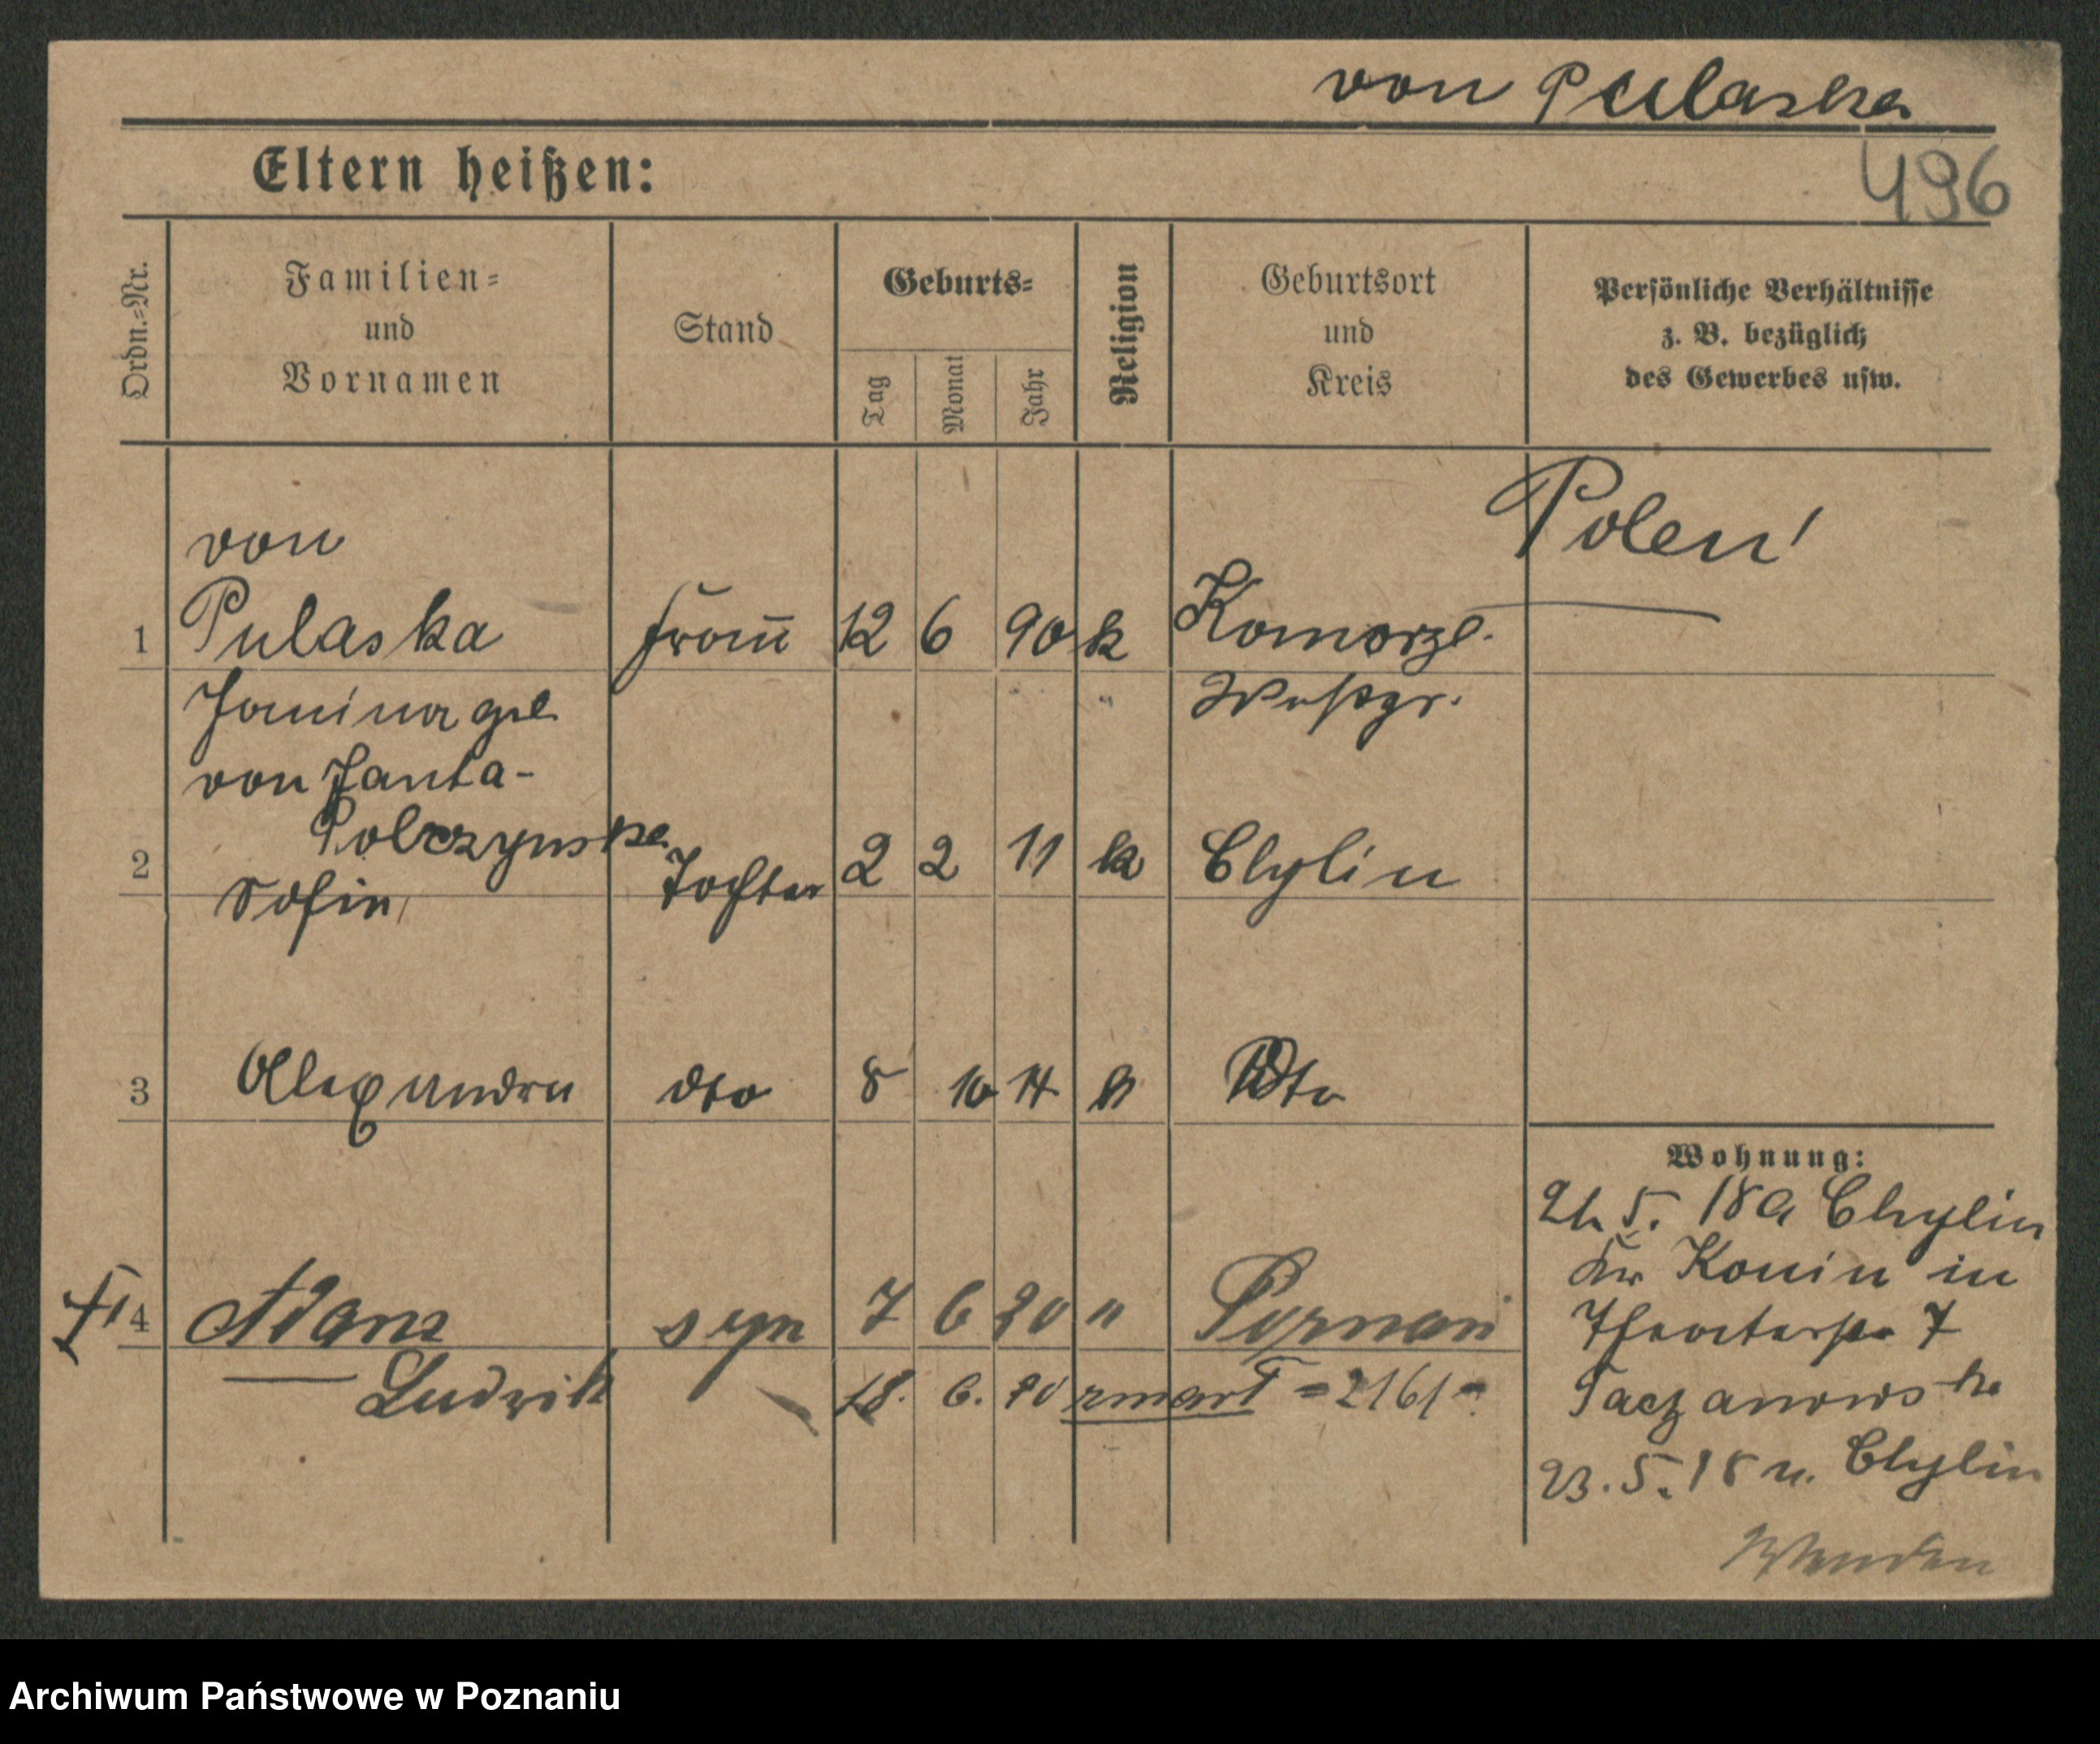 von Pulaska
Eltern heißen:
496
Ordn.-Nr.
Familien-
und
Vornamen
Stand
Geburts-
Tag
Monat
Jahr
Religion
Geburtsort
und
Kreis
Persönliche Verhältnisse
z. B. bezüglich
des Gewerbes usw.
Polen!
von
1 Pulaska Frau 12 6 90 k Komorze
Janina geb. Wstpr.
von Janta-
Polczynska
2 Sofia, Tochter 2 2 11 k Chylin
3 Alexandra dto 8 10 14 k Dto
4 Adam syn 7 6 20 " Poznań
Ludwik 18. 6. 20 zmarł =2161=
Wohnung:
21. 5. 18 a Chylin
Kr Konin in
Theaterstr 7
Taczanowska
23. 5. 18 n. Chylin
Wenden
Archiwum Państwowe w Poznaniu